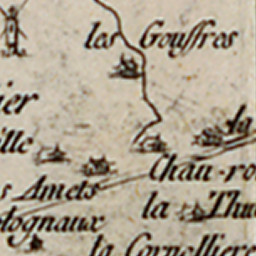 les Gouffres
ier
la
ille
Chau-ro
s Amets
la Thu
olognaux
la Cornelliere